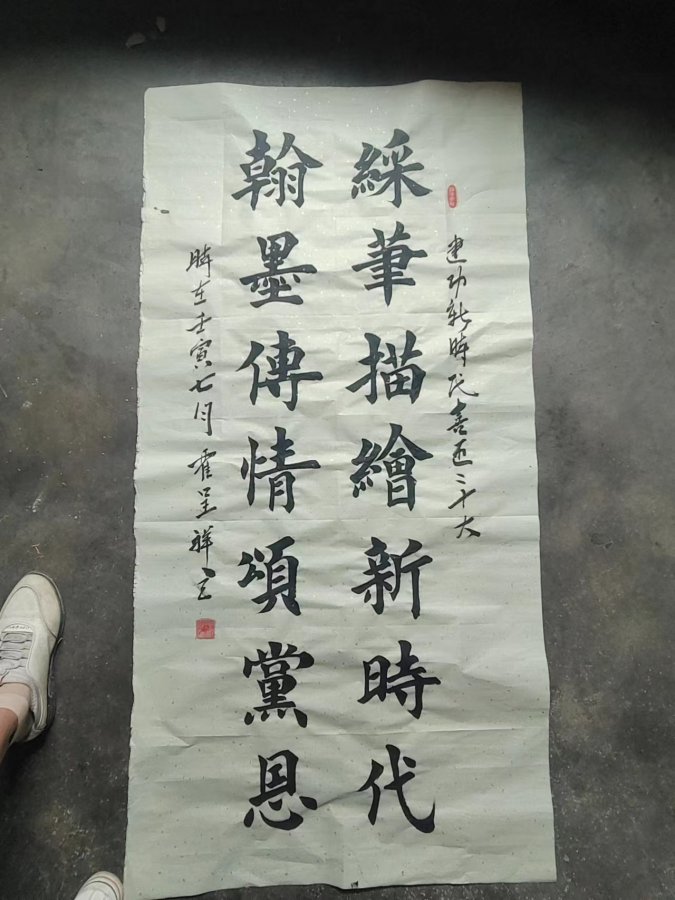 建功新時代喜迎二十大
綵筆描繪新時代
翰墨傳情頌黨恩
時在壬寅七月霍呈祥書